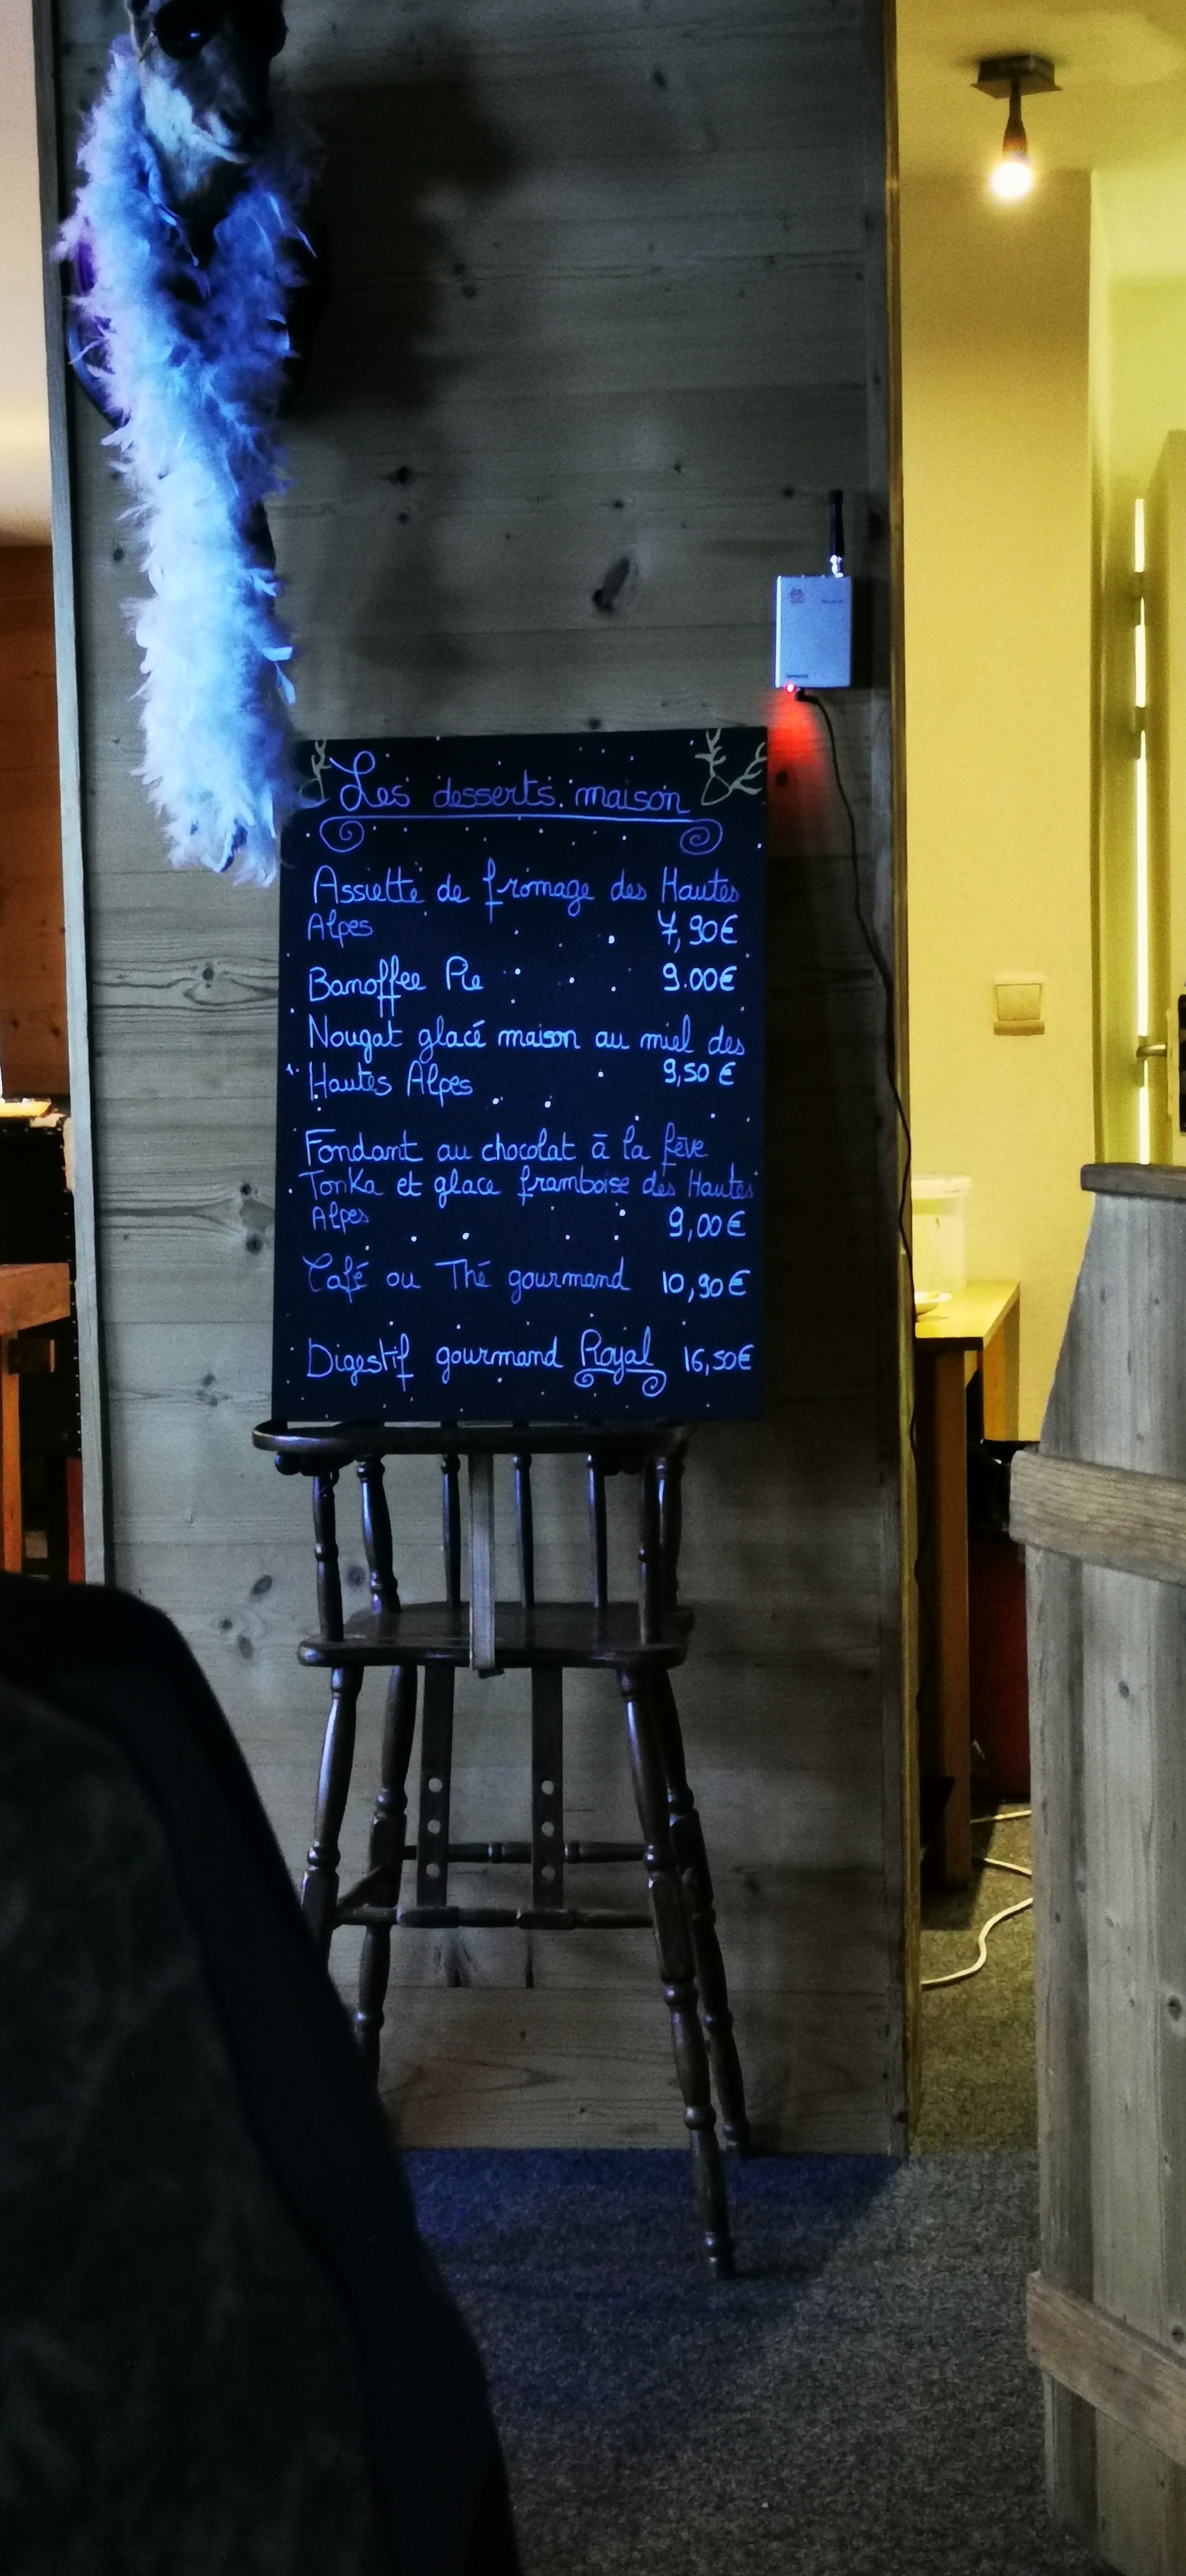 Les desserts maison
Assiette de fromage des Hautes
Alpes 7,90€
Banoffee Pie 9.00€
Nougat glacé maison au miel des
Hautes Alpes 9,50 €
Fondant au chocolat à la fève
Tonka et glace framboise des Hautes
Alpes 9,00€
Café ou Thé gourmand 10,90€
Digestif gourmand Royal 16,50€